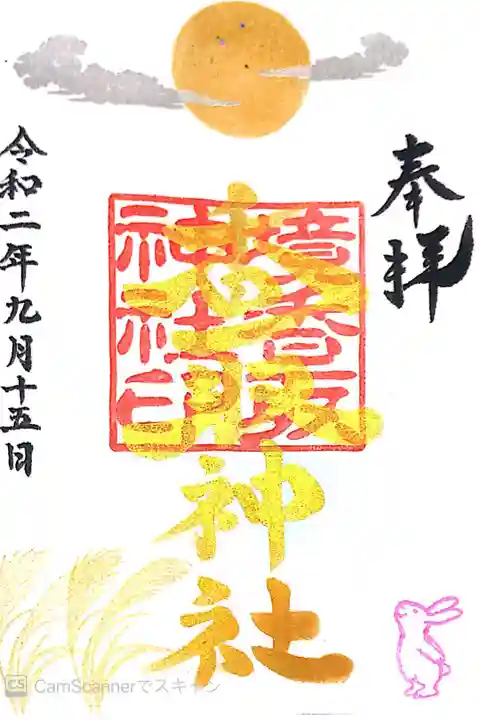 奉拝
香取神社
香取
神社印
令和二年九月十五日
CS CamScannerでスキャン